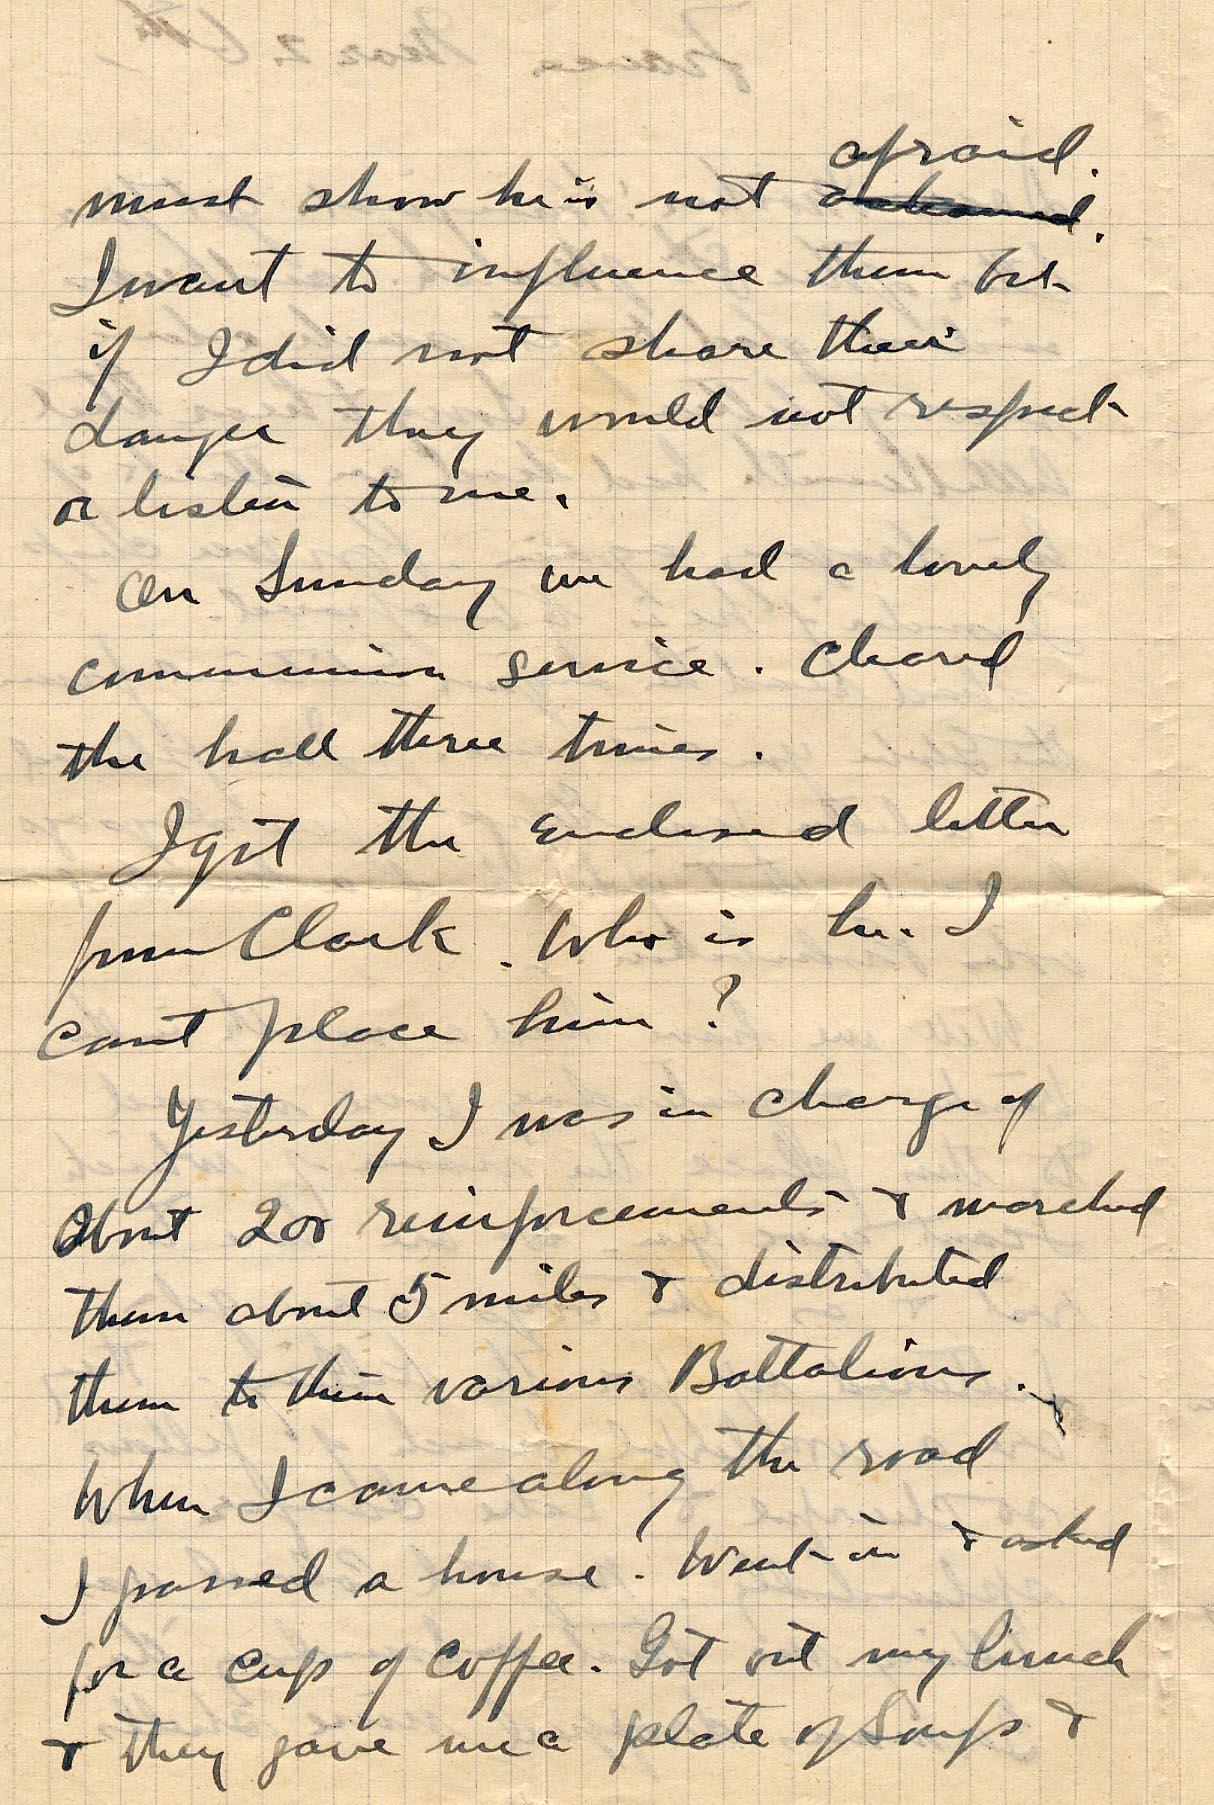 afraid.
must show he is not ashamed.
I want to influence them but
if I did not share their
danger they would not respect
or listen to me.
On Sunday we had a lovely
communion service. Cleared
the hall three times.
I got the enclosed letter
from Clark. Who is he. I
cant place him?
Yesterday I was in charge of
about 200 reinforcements & marched
them about 5 miles & distributed
them to their various Battalions.
When I came along the road
I passed a house. Went in & asked
for a cup of coffee. Got out my lunch
& they gave me a plate of Soup &